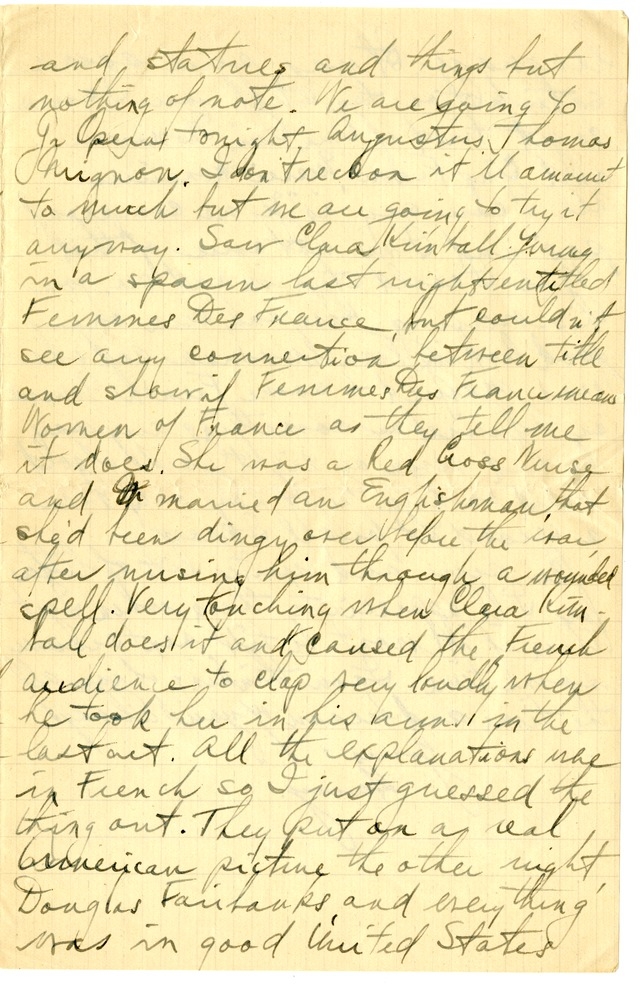 and statues and things but
nothing of note. We are going to
Gr Opera tonight, Augustus Thomas
Mignon. I don't reckon it'll amount
to much but we are going to try it
anyway. Saw Clara Kimball Young
in a spasm last night entitled
Femmes Des France, but couldn't
see any connection between title
and show if Femmes Des France means
Women of France as they tell me
it does. She was a Red Cross Nurse
and married an Englishman that
she'd been dingy over before the war,
after nursing him through a wounded
spell. Very touching when Clara Kim-
ball does it and caused the French
audience to clap very loudly when
he took her in his arms in the
last act. All the explanations were
in French so I just guessed the
thing out. They put on a real
American picture the other night,
Douglas Fairbanks and everything
was in good United States